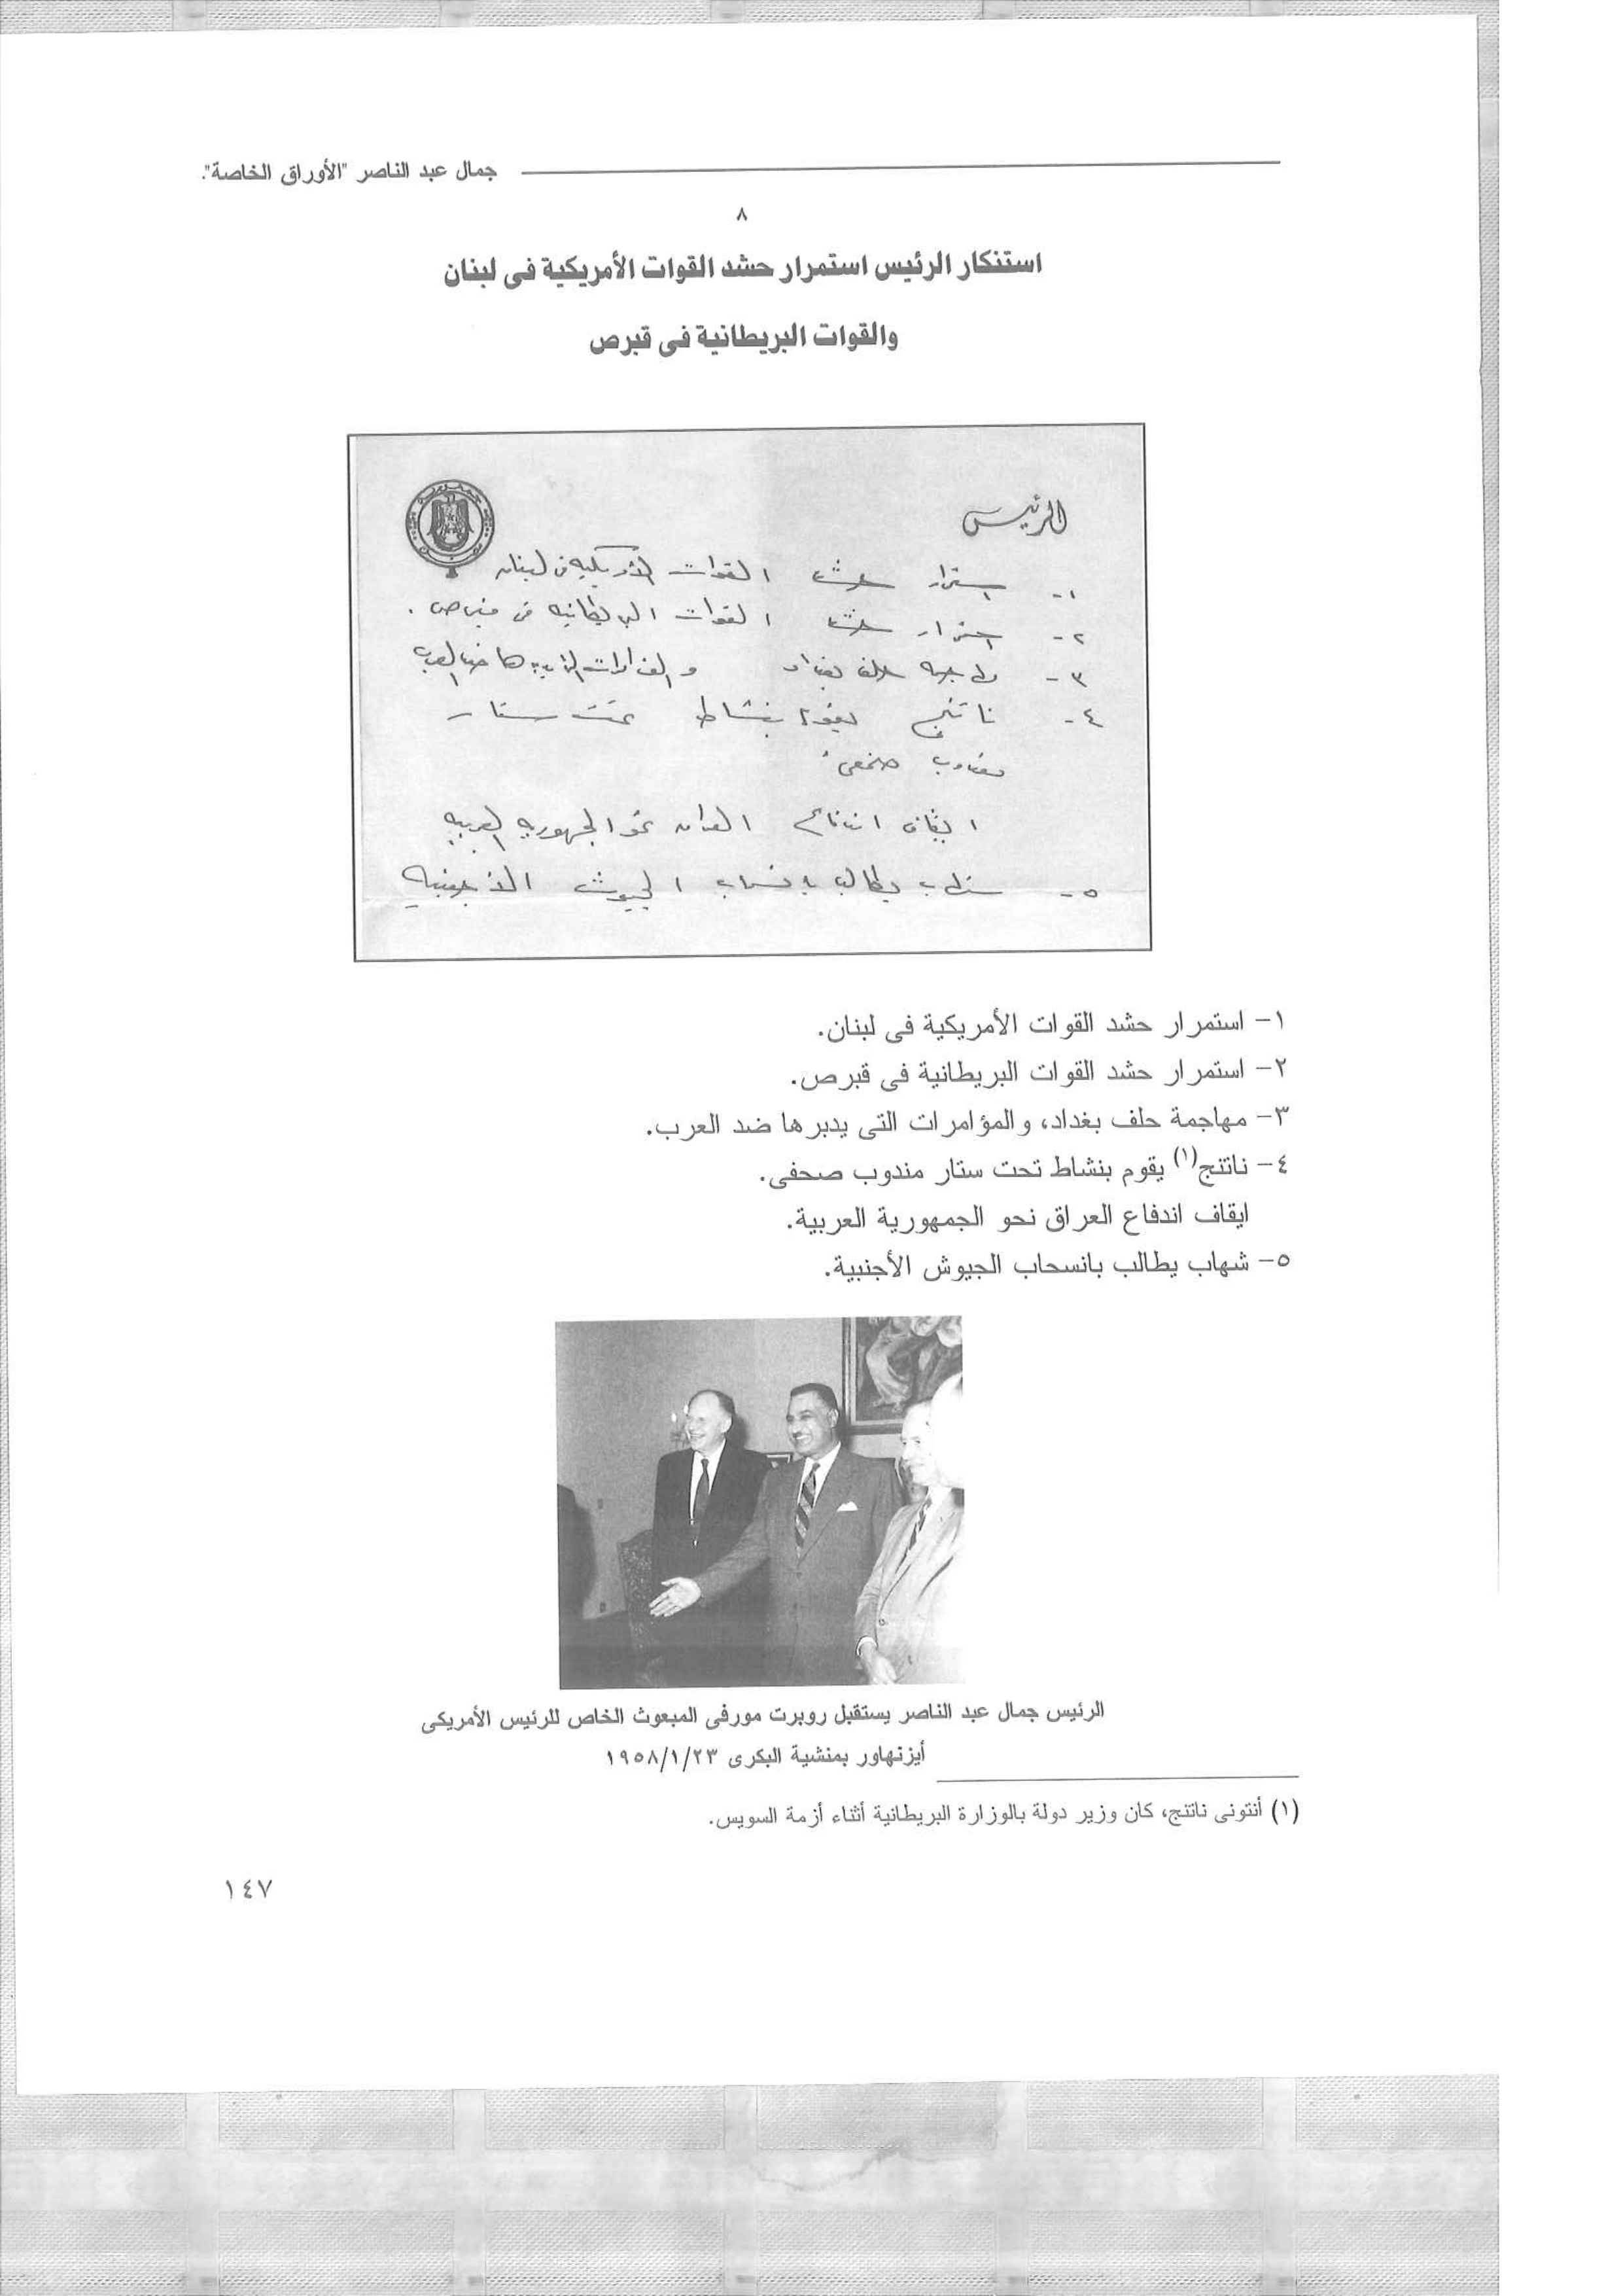 جمال عبد الناصر "الأوراق الخاصة".
٨
استنكار الرئيس استمرار حشد القوات الأمريكية فى لبنان
والقوات البريطانية فى قبرص
الرئيس
١- استمرار حشد القوات الأمريكيه فى لبنان
٢- استمرار حشد القوات البريطانيه فى قبرص.
٣- مهاجمه حلف بغداد و ضد العرب
٤- ناتنج يقوم بنشاط تحت ستار
مندوب صحفى.
ايقاف اندفاع العراق نحو الجمهوريه العربيه
٥- شهاب يطالب بانسحاب الجيوش الأجنبيه
١- استمرار حشد القوات الأمريكية فى لبنان.
٢- استمرار حشد القوات البريطانية فى قبرص.
٣- مهاجمة حلف بغداد، والمؤامرات التى يدبرها ضد العرب.
٤- ناتنج(١) يقوم بنشاط تحت ستار مندوب صحفى.
ايقاف اندفاع العراق نحو الجمهورية العربية.
٥- شهاب يطالب بانسحاب الجيوش الأجنبية.
الرئيس جمال عبد الناصر يستقبل روبرت مورفى المبعوث الخاص للرئيس الأمريكى
أيزنهاور بمنشية البكرى ١٩٥٨/١/٢٣
(١) أنتونى ناتنج، كان وزير دولة بالوزارة البريطانية أثناء أزمة السويس.
١٤٧